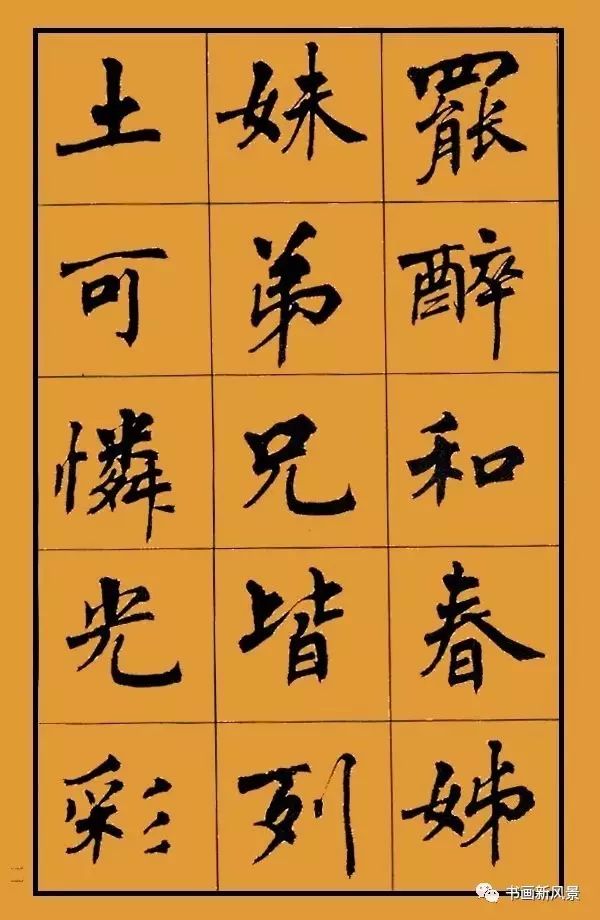 罷醉和春姊
妹弟兄皆列
土可憐光彩
二
书画新风景